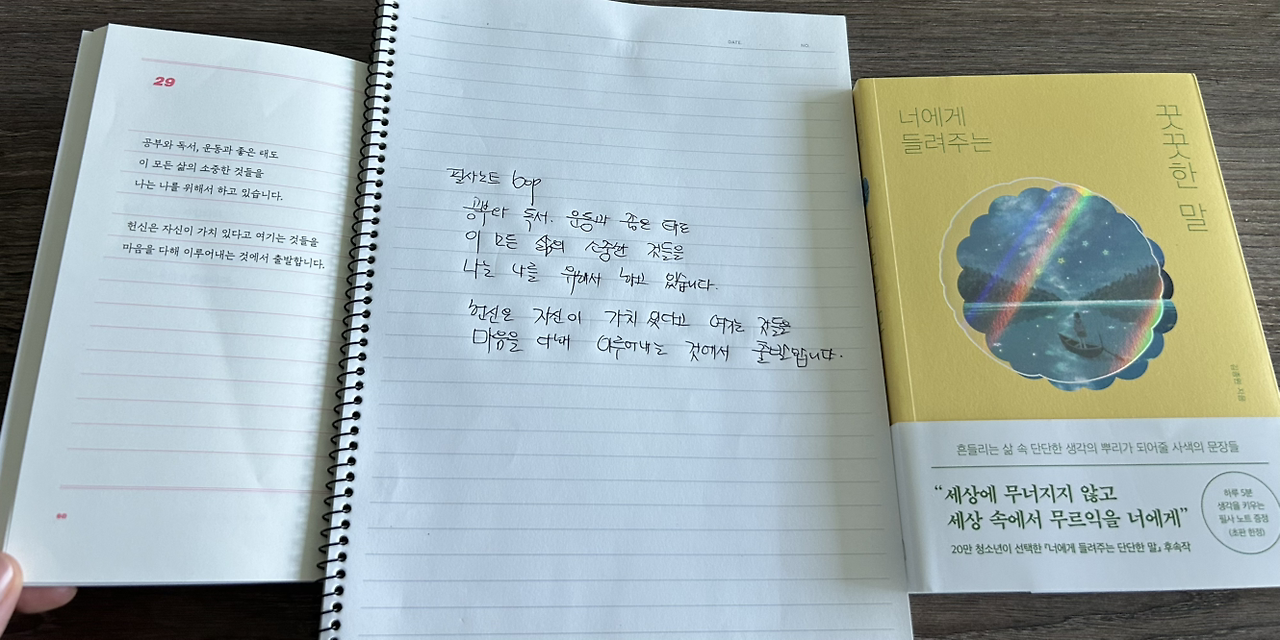 29
공부와 독서, 운동과 좋은 태도
이 모든 삶의 소중한 것들을
나는 나를 위해서 하고 있습니다.
헌신은 자신이 가치 있다고 여기는 것들을
마음을 다해 이루어내는 것에서 출발합니다.
60
DATE.
NO.
필사노트 60p
공부와 독서. 운동과 좋은 태도
이 모든 삶의 소중한 것들을
나는 나를 위해서 하고 있습니다.
헌신은 자신이 가치 있다고 여기는 것들을
마음을 다해 이루어내는 것에서 출발합니다.
너에게
들려주는
꿋꿋한 말
김종원 지음
흔들리는 삶 속 단단한 생각의 뿌리가 되어줄 사색의 문장들
“세상에 무너지지 않고
세상 속에서 무르익을 너에게”
20만 청소년이 선택한 『너에게 들려주는 단단한 말』 후속작
하루 5분
생각을 키우는
필사 노트 증정
(초판 한정)